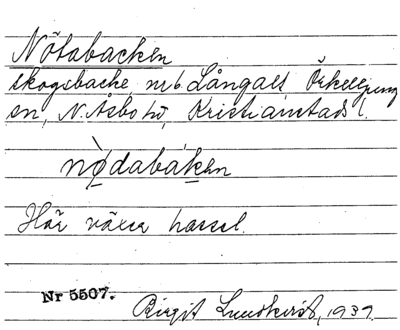 Nötabacken
skogsbacke, nr 6 Långalt Örkelljung
sn, N. Åsbo hd, Kristianstads l.
nø̀dabáken
Här växer hassel.
Nr 5507.
Birgit Lundkvist, 1937.